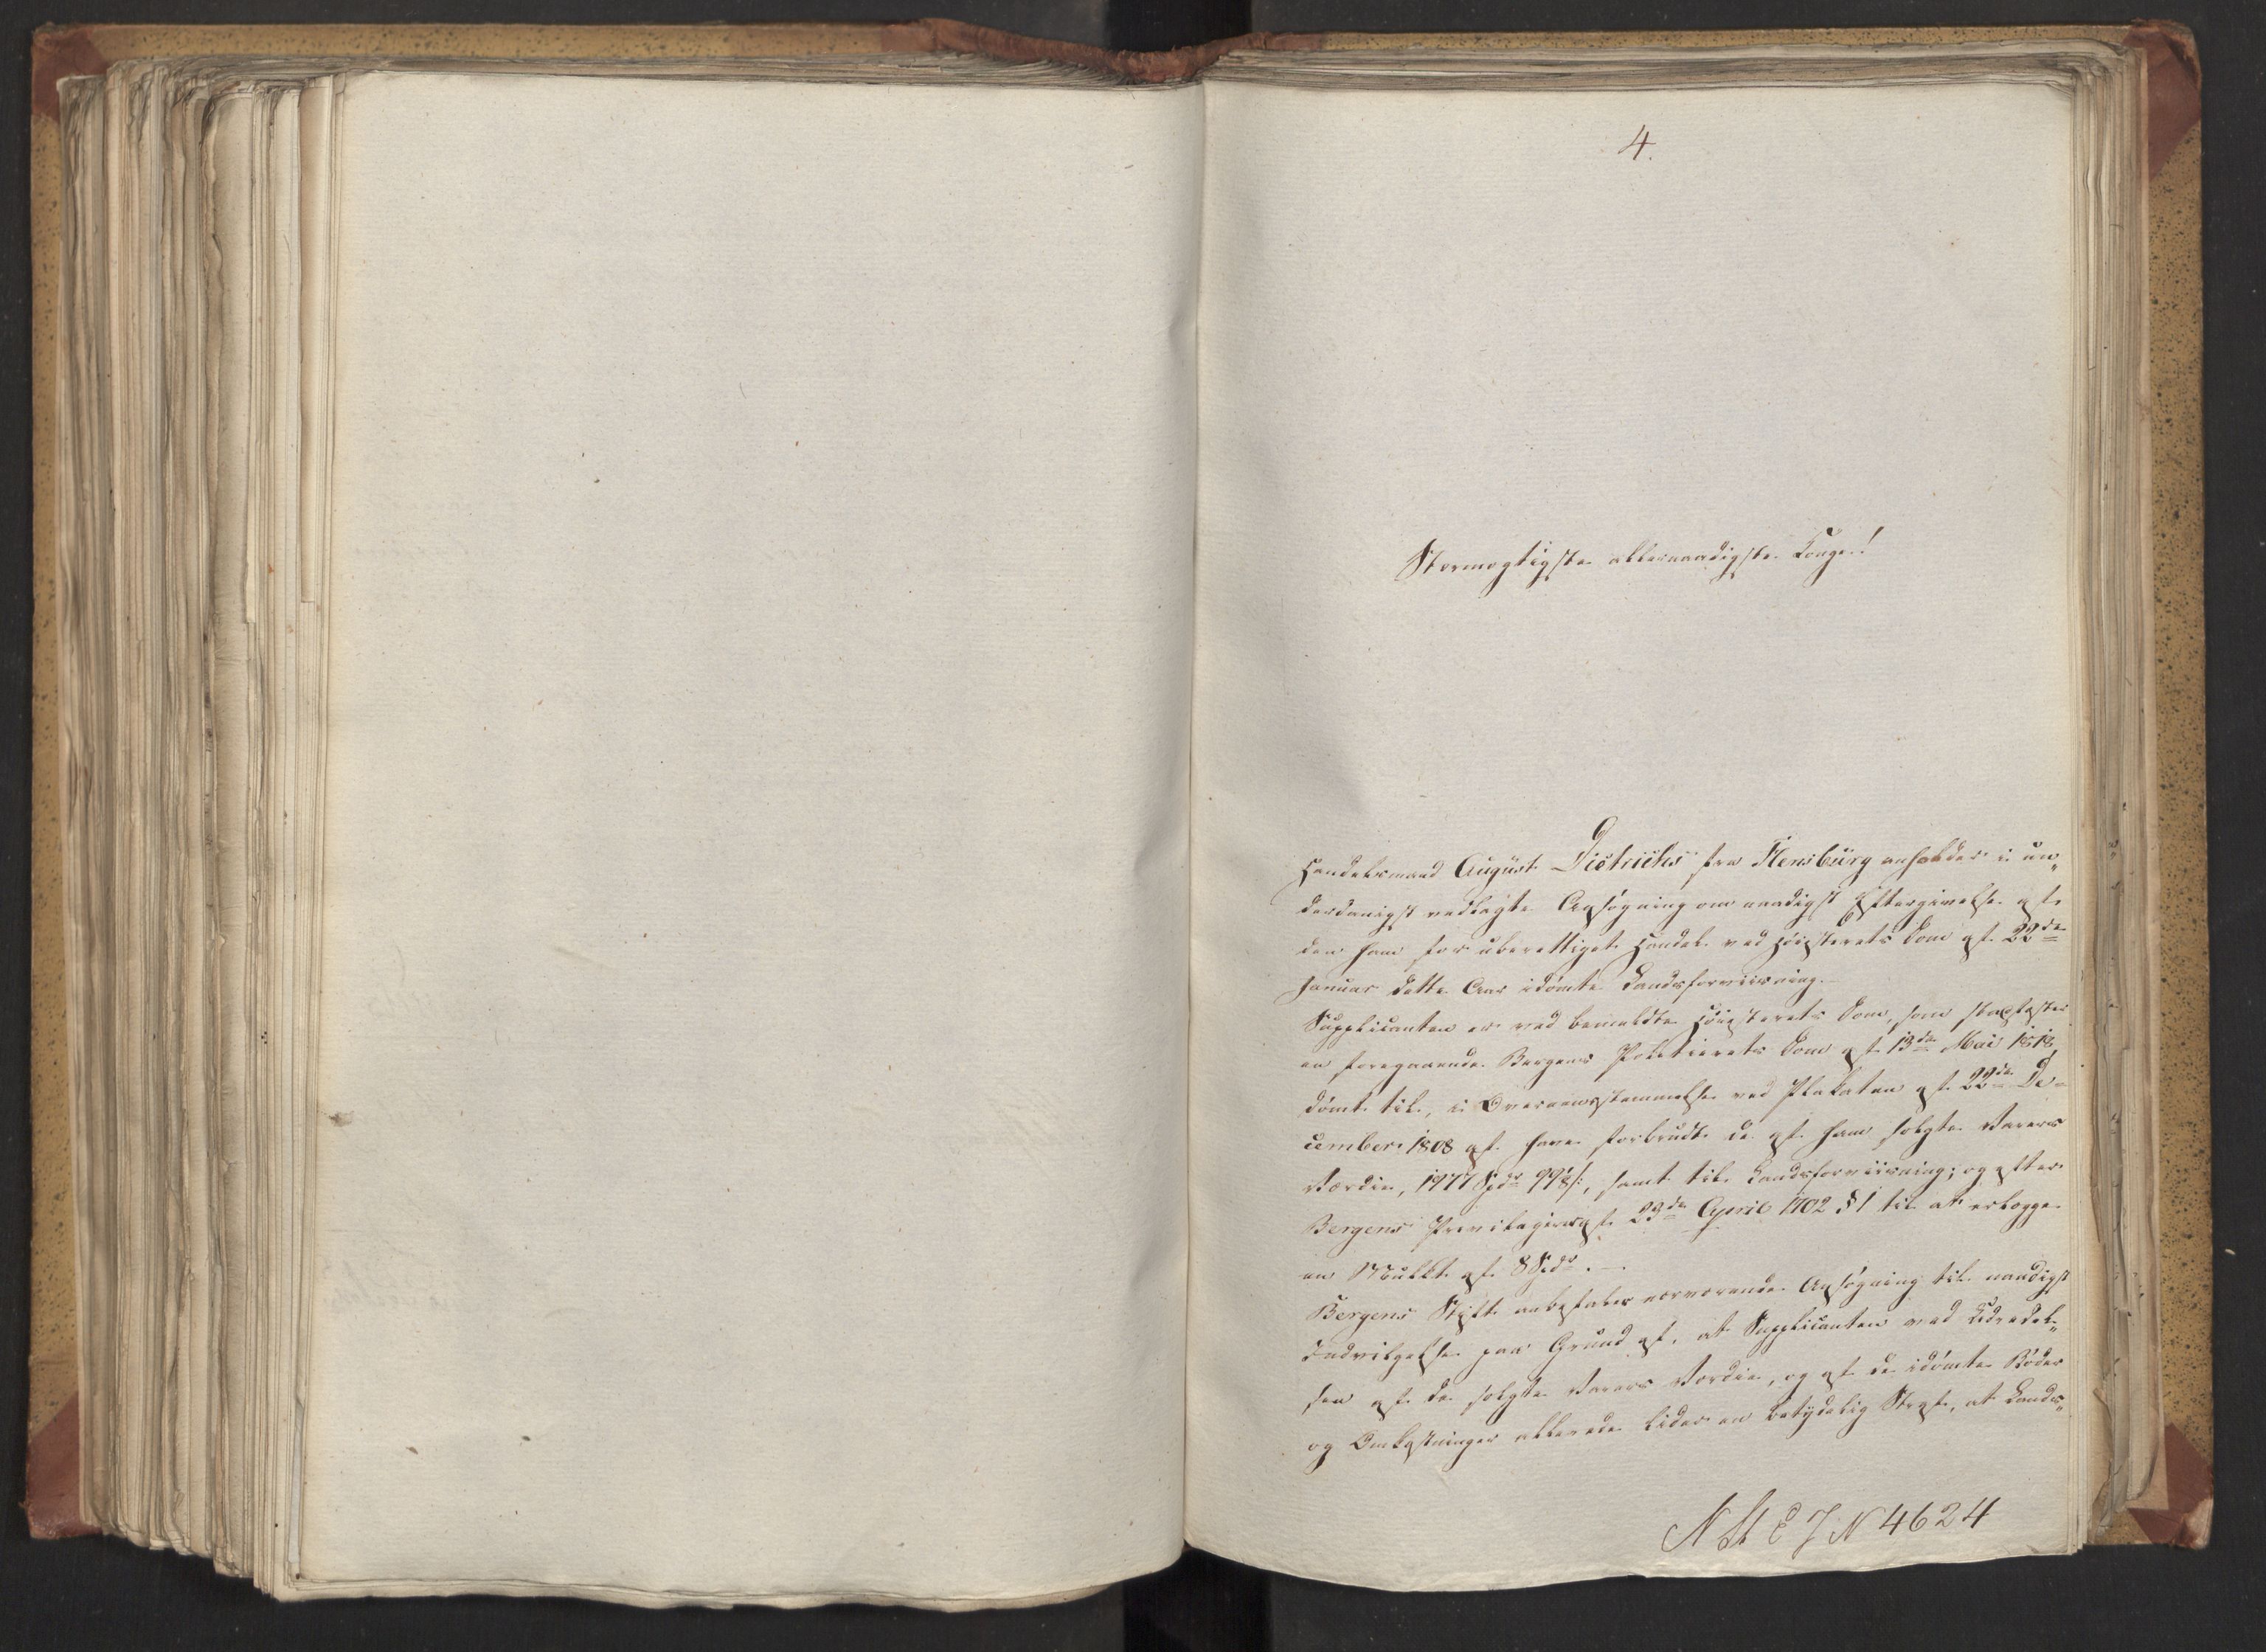 4.
Stormægtigste allernaadigste Konge!
Handelsmand August Dietrichs fra Flensburg anholder i un„
derdanigst vedlagte Ansøgning om naadigst Eftergivelse af
den ham for uberettiget Handel ved Høiesterets Dom af 22de
Januar dette Aar idømte Landsforviisning.
Supplicanten er ved bemeldte Høiesterets Dom, som stadfæster
en foregaaende Bergens Politierets Dom af 13de Mai 1818,
dømt til, i Overeensstemmelse med Plakaten af 22de De-
cember 1808 at have forbrudt de af ham solgte Varers
Værdie, 1977 Spdr 99 s:, samt til Landsforviisning; og efter
Bergens Privilegier af 23de April 1702 § 1 til at erlægge
en Mulkt af 8 Spdr. —
Bergens Stift anbefaler nærværende Ansøgning til naadigst
Indvilgelse paa Grund af, at Supplicanten ved Udredel„
sen af de solgte Varers Værdie, og af de idømte Bøder
og Omkostninger allerede lider en betydelig Straf, at Lands„
N St E J N 4624